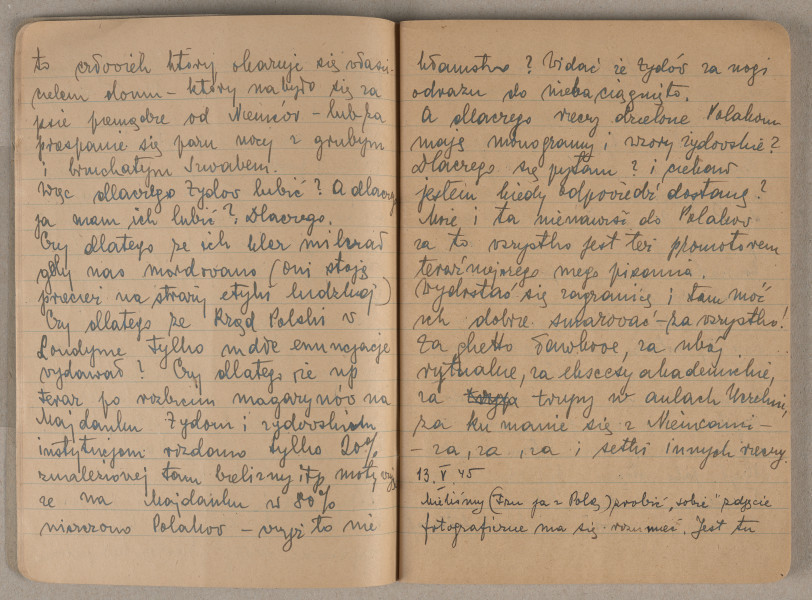 to człowiek który okazuje się właści-
cielem domu – który nabył się za
psie pieniądze od Niemców – lub za
przespanie się paru nocy z grubym
i brzuchatym Szwabem.
Więc dlaczego Żydów lubić? A dlaczego
ja mam ich lubić? Dlaczego.
Czy dlatego że ich kler milczał
gdy nas mordowano (oni stoją
przecież na straży etyki ludzkiej)
Czy dlatego że Rząd Polski w
Londynie tylko mdłe enuncjacje
wydawał? Czy dlatego że np
teraz po rozbiciu magazynów na
Majdanku Żydom i żydowskim
instytucjom rozdano tylko 20%
znalezionej tam bielizny itp
że na Majdanku w 80%
niszczono Polaków – czyż to nie
kłamstwo? Widać że Żydów za nogi
odrazu do nieba ciągnięto.
A dlaczego rzeczy dzielone Polakom
mają monogramy i wzory żydowskie?
Dlaczego się pytam? i ciekaw
jestem kiedy odpowiedź dostanę?
Może i ta nienawiść do Polaków
za to wszystko jest też promotorem
teraźniejszego mego pisania.
Wydostać się zagranicę i tam móc
ich dobrze smarować – za wszystko!
Za ghetto ławkowe, za ubój
rytualny, za ekscesy akademickie,
za trupy w aulach Uczelni,
za kumanie się z Niemcami –
– za, za, za i setki innych rzeczy.
13.V.45
Mieliśmy (Fru ja i Pola) zrobić „sobie” zdjęcie
fotograficzne ma się rozumieć. Jest tu